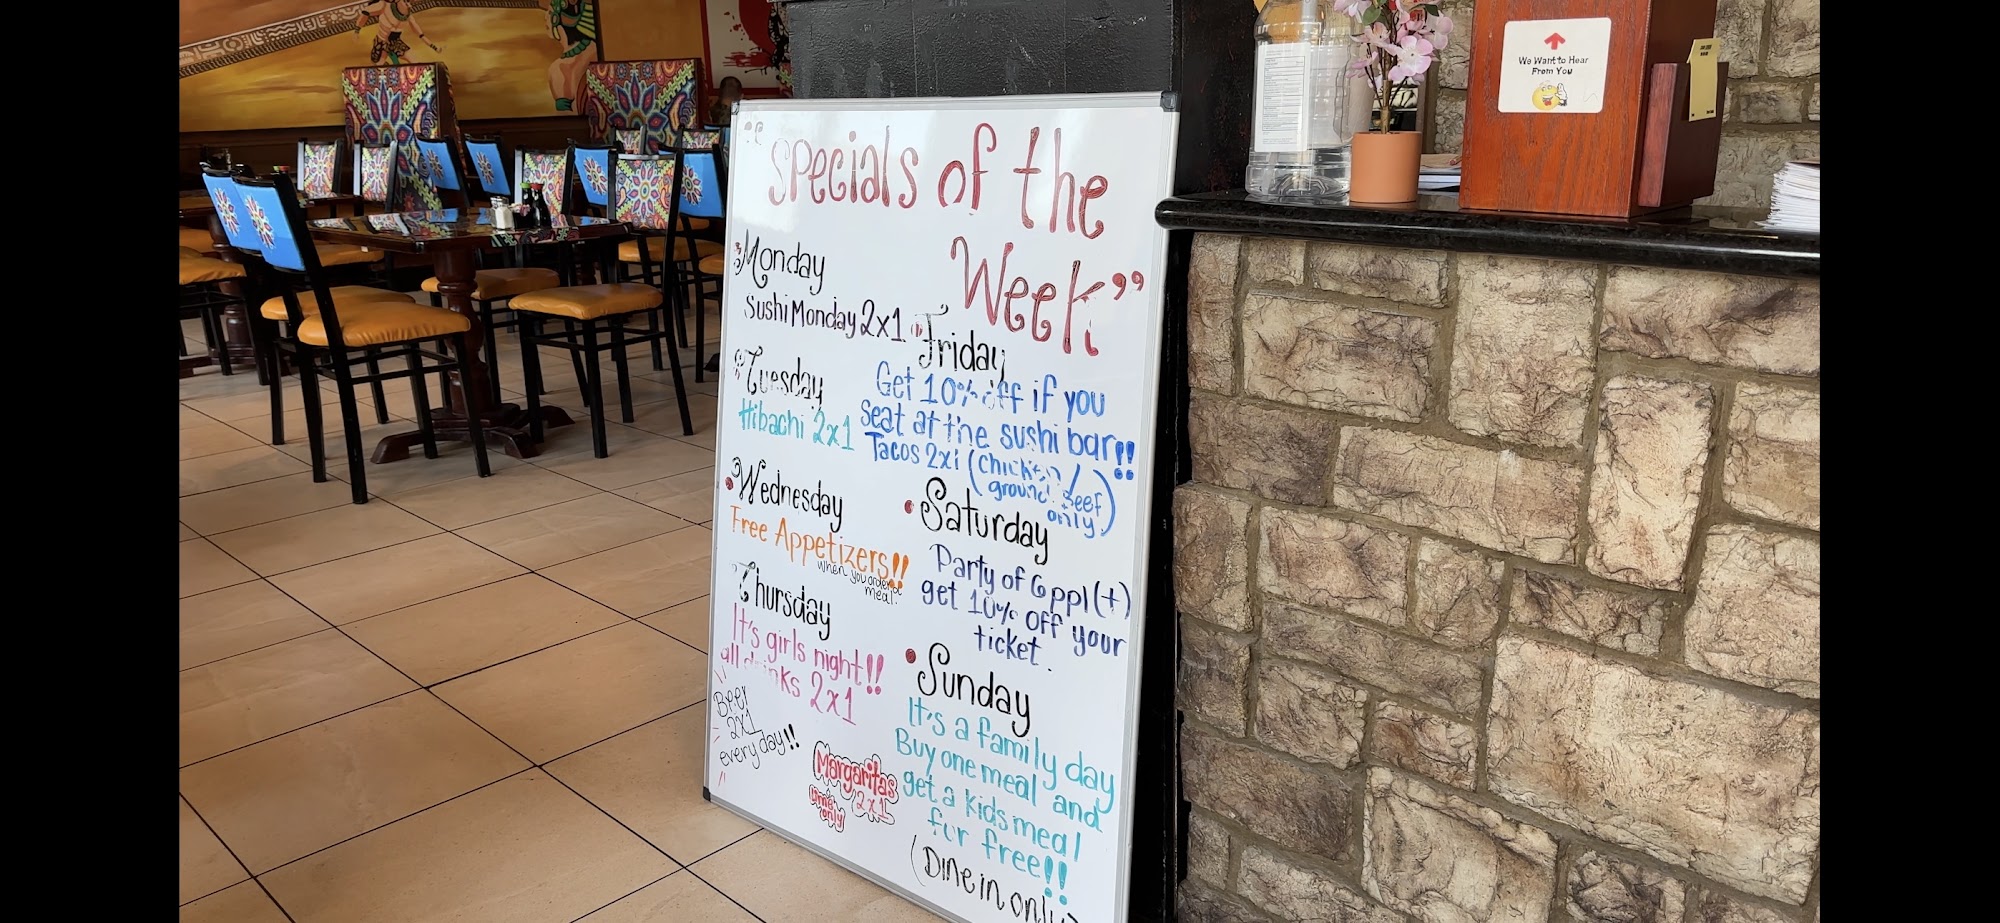 "Specials of the
Week"
Monday
Sushi Monday 2x1
Tuesday
Hibachi 2x1
Wednesday
Free Appetizers!!
when you order a
meal.
Thursday
It's girls night!!
all drinks 2x1
Beer
2x1
everyday!!
Margaritas
2x1
lime
only
Friday
Get 10% off if you
seat at the sushi bar!!
Tacos 2x1 (chicken/
ground Beef
only)
Saturday
Party of 6 ppl (+)
get 10% off your
ticket.
Sunday
It's a family day
Buy one meal and
get a kids meal
for free!!
(Dine in only)
We Want to Hear
From You